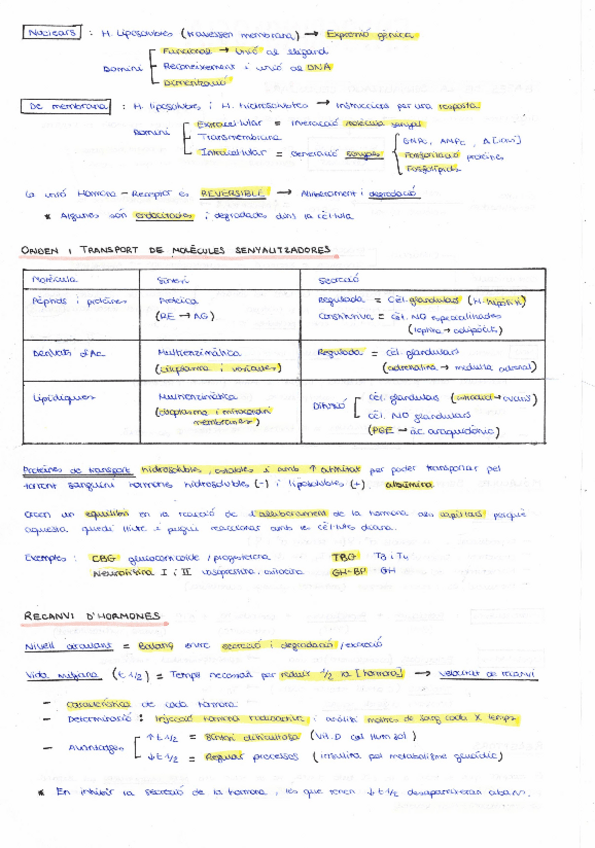 Nuclears : H. Liposolubles (travessen membrana) → Expressió gènica
Domini
Funcional → unió al lligand
Reconeixement i unió al DNA
Dimerització
De membrana : H. liposolubles i H. hidrosolubles → instruccions per una resposta
Domini
Extracel·lular = interacció molècula senyal
Transmembrana
Intracel·lular = Generació senyals
GMPc, AMPc, Δ[ions]
Fosforilació proteïnes
Fosfolípids
La unió Hormona - Receptor és REVERSIBLE → Alliberament i degradació
* Alguns són endocitats i degradats dins la cèl·lula
ORIGEN I TRANSPORT DE MOLÈCULES SENYALITZADORES
Molècula Síntesi Secreció
Pèptids i proteïnes Proteica Regulada = Cèl. glandulars
(RE → AG) Constitutiva = cèl. NO especialitzades
(leptina → adipòcit)
Derivats d'Aa Multienzimàtica Regulada = cèl. glandulars
(citoplasma i vesícules) (adrenalina → medul·la adrenal)
Lipídiques Multienzimàtica Difusió cèl. glandulars
(citoplasma i mitocondri membranes) cèl. NO glandulars
(PGE → àc. araquidònic)
Proteïnes de transport hidrosolubles, estables i amb ↑ afinitat per poder transportar pel
torrent sanguini hormones hidrosolubles (-) i liposolubles (+). albúmina
Creen un equilibri en la reacció de l'alliberament de la hormona als capil·lars perquè
aquesta quedi lliure i pugui reaccionar amb les cèl·lules diana.
Exemples : CBG glucocorticoide / progesterona TBG T3 i T4
Neurofisina I i II vasopressina, oxitocina GH-BP GH
RECANVI D'HORMONES
Nivell circulant = Balanç entre secreció i degradació/excreció
Vida mitjana (t 1/2) = Temps necessari per reduir 1/2 la [hormona] → velocitat de recanvi
- característica de cada hormona
- Determinació : Injecció hormona radioactiva i anàlisi mostres de sang cada X temps
- Avantatges
↑ t 1/2 = Síntesi dificultosa (Vit. D cal llum sol)
↓ t 1/2 = Regular processos (insulina pel metabolisme glucídic)
* En inhibir la secreció de la hormona, les que tenen ↓ t 1/2 desapareixeran abans.